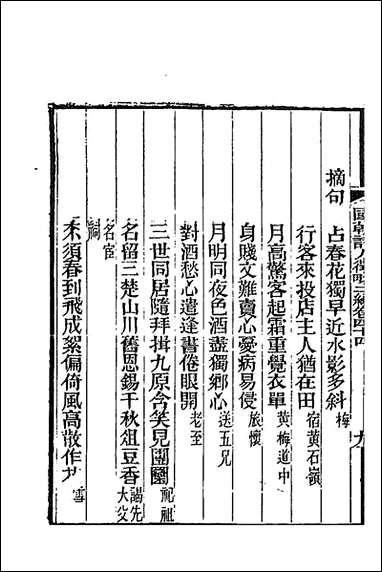 國朝詩人徵略二編卷四十四
摘句
占春花獨早近水影多斜 梅
行客來投店主人猶在田 宿黃石嶺
月高驚客起霜重覺衣單 黃梅道中
身賤文難賣心憂病易侵 旅懷
月明同夜色酒盡獨鄉心 送五兄
對酒愁心遣逢書倦眼開 老至
三世同居隨拜揖九原含笑見團圞 祀祖
名留三楚山川舊恩錫千秋俎豆香 謁先大父
名宦
祠
不須春到飛成絮偏倚風高散作 雪